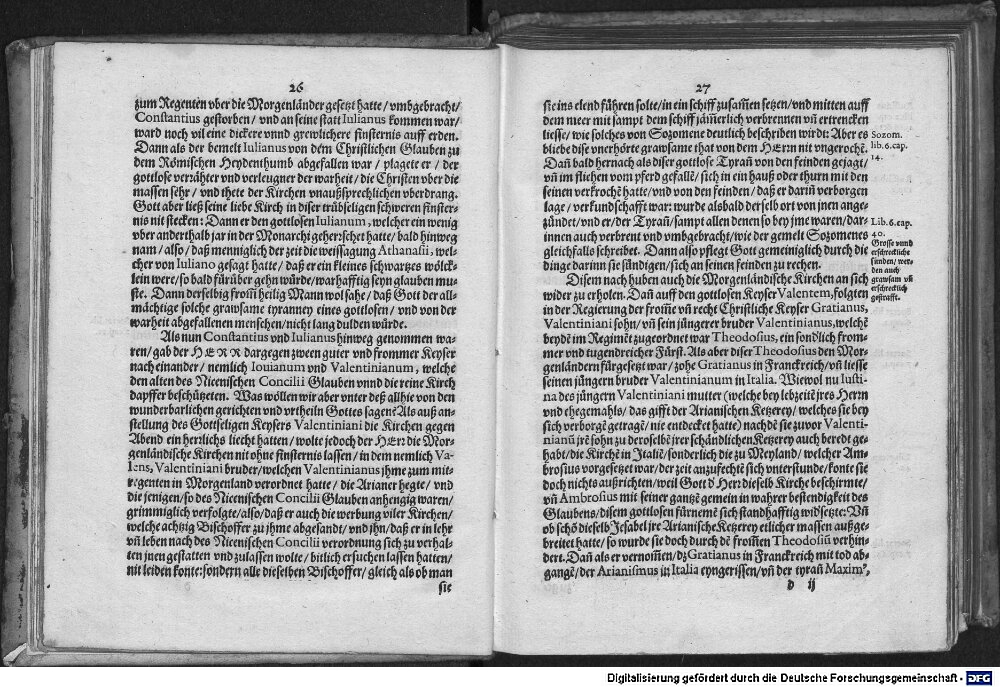 26
zum Regenten vber die Morgenländer gesetzt hatte / vmbgebracht/
Constantius gestorben / vnd an seine statt Iulianus kommen war/
ward noch vil eine dickere vnnd grewlichere finsternis auff erden.
Dann als der bemelt Iulianus von dem Christlichen Glauben zu
dem Römischen Heydenthumb abgefallen war / plagete er / der
gottlose verrähter vnd verleugner der warheit / die Christen vber die
massen sehr / vnd thete der Kirchen vnaußsprechlichen vberdrang.
Gott aber ließ seine liebe Kirch in diser trübseligen schweren finster-
nis nit stecken: Dann er den gottlosen Iulianum, welcher ein wenig
vber anderthalb jar in der Monarchi geherrschet hatte / bald hinweg
nam / also / daß menniglich der zeit die weissagung Athanasii, wel-
cher von Iuliano gesagt hatte / daß er ein kleines schwartzes wölck-
lein were / so bald fürüber gehn würde / warhafftig seyn glauben mu-
ste. Dann derselbig from̃ heilig Mann wol sahe / daß Gott der all-
mächtige solche grawsame tyranney eines gottlosen / vnd von der
warheit abgefallenen menschen / nicht lang dulden würde.
Als nun Constantius vnd Iulianus hinweg genommen wa-
ren / gab der HERR dargegen zween guter vnd frommer Keyser
nach einander / nemlich Iouianum vnd Valentinianum, welche
den alten des Nicenischen Concilii Glauben vnnd die reine Kirch
dapffer beschützeten. Was wöllen wir aber vnter deß allhie von den
wunderbarlichen gerichten vnd vrtheiln Gottes sagen? Als auß an-
stellung des Gottseligen Keysers Valentiniani die Kirchen gegen
Abend ein herrlichs liecht hatten / wolte jedoch der HErr die Mor-
genländische Kirchen nit ohne finsternis lassen / in dem nemlich Va-
lens, Valentiniani bruder / welchen Valentinianus jhme zum mit-
regenten in Morgenland verordnet hatte / die Arianer hegte / vnd
die jenigen / so des Nicenischen Concilii Glauben anhengig waren/
grimmiglich verfolgte / also / daß er auch die werbung viler Kirchen/
welche achtzig Bischoffer zu jhme abgesandt / vnd jhn / daß er in lehr
vñ leben nach des Nicenischen Concilii verordnung sich zu verhal-
ten jnen gestatten vnd zulassen wolte / bitlich ersuchen lassen hatten/
nit leiden konte: sondern alle dieselben Bischoffer / gleich als ob man
sie
27
sie ins elend führen solte / in ein schiff zusam̃en setzen / vnd mitten auff
dem meer mit sampt dem schiff jäm̃erlich verbrennen vñ ertrencken
liesse / wie solches von Sozomene deutlich beschriben wirdt: Aber es
bliebe dise vnerhörte grawsame that von dem HErrn nit vngerochẽ.
Dañ bald hernach als diser gottlose Tyrañ von den feinden gejagt/
vñ im fliehen vom pferd gefallẽ / sich in ein hauß oder thurn mit den
seinen verkrochẽ hatte / vnd von den feinden / daß er dariñ verborgen
lage / verkundschafft war: wurde alsbald derselb ort von jnen ange-
zündet / vnd er / der Tyrañ / sampt allen denen so bey jme waren / dar-
innen auch verbrent vnd vmbgebracht / wie der gemelt Sozomenes
gleichfalls schreibet. Dann also pflegt Gott gemeiniglich durch die
dinge darinn sie sündigen / sich an seinen feinden zu rechen.
Disem nach huben auch die Morgenländische Kirchen an sich
wider zu erholen. Dañ auff den gottlosen Keyser Valentem, folgten
in der Regierung der from̃e vñ recht Christliche Keyser Gratianus,
Valentiniani sohn / vñ sein jüngerer bruder Valentinianus, welchẽ
beydẽ im Regimẽt zugeordnet war Theodosius, ein sondlich from-
mer vnd tugendreicher Fürst. Als aber diser Theodosius den Mor-
genländern fürgesetzt war / zohe Gratianus in Franckreich / vñ liesse
seinen jüngern bruder Valentinianum in Italia. Wiewol nu Iusti-
na des jüngern Valentiniani mutter (welche bey lebzeitẽ jres Herrn
vnd ehegemahls / das gifft der Arianischen Ketzerey / welches sie bey
sich verborgẽ getragẽ / nie entdecket hatte) nachdẽ sie zuvor Valenti-
nianũ jrẽ sohn zu deroselbẽ jrer schändlichen Ketzerey auch beredt ge-
habt / die Kirchẽ in Italiẽ / sonderlich die zu Meyland / welcher Am-
brosius vorgesetzt war / der zeit anzufechtẽ sich vnterstunde / konte sie
doch nichts außrichten / weil Gott d' HErr dieselb Kirche beschirmte/
vñ Ambrosius mit seiner gantzẽ gemein in wahrer bestendigkeit des
Glaubens / disem gottlosen fürnemẽ sich standhafftig widsetzte: Vñ
ob schõ dieselb Jesabel jre Arianische Ketzerey etlicher massen außge-
breitet hatte / so wurde sie doch durch dẽ from̃en Theodosiũ verhin-
dert. Dañ als er vernom̃en / dz Gratianus in Franckreich mit tod ab-
gangẽ / der Arianismus in Italia eyngerissen / vñ der tyrañ Maxim9,
d ij
Sozom.
lib.6.cap.
14.
Lib.6.cap.
40.
Grosse vnnd
erschreckliche
sünden / wer-
den auch
grawsam vñ
erschrecklich
gestrafft.
Digitalisierung gefördert durch die Deutsche Forschungsgemeinschaft - DFG